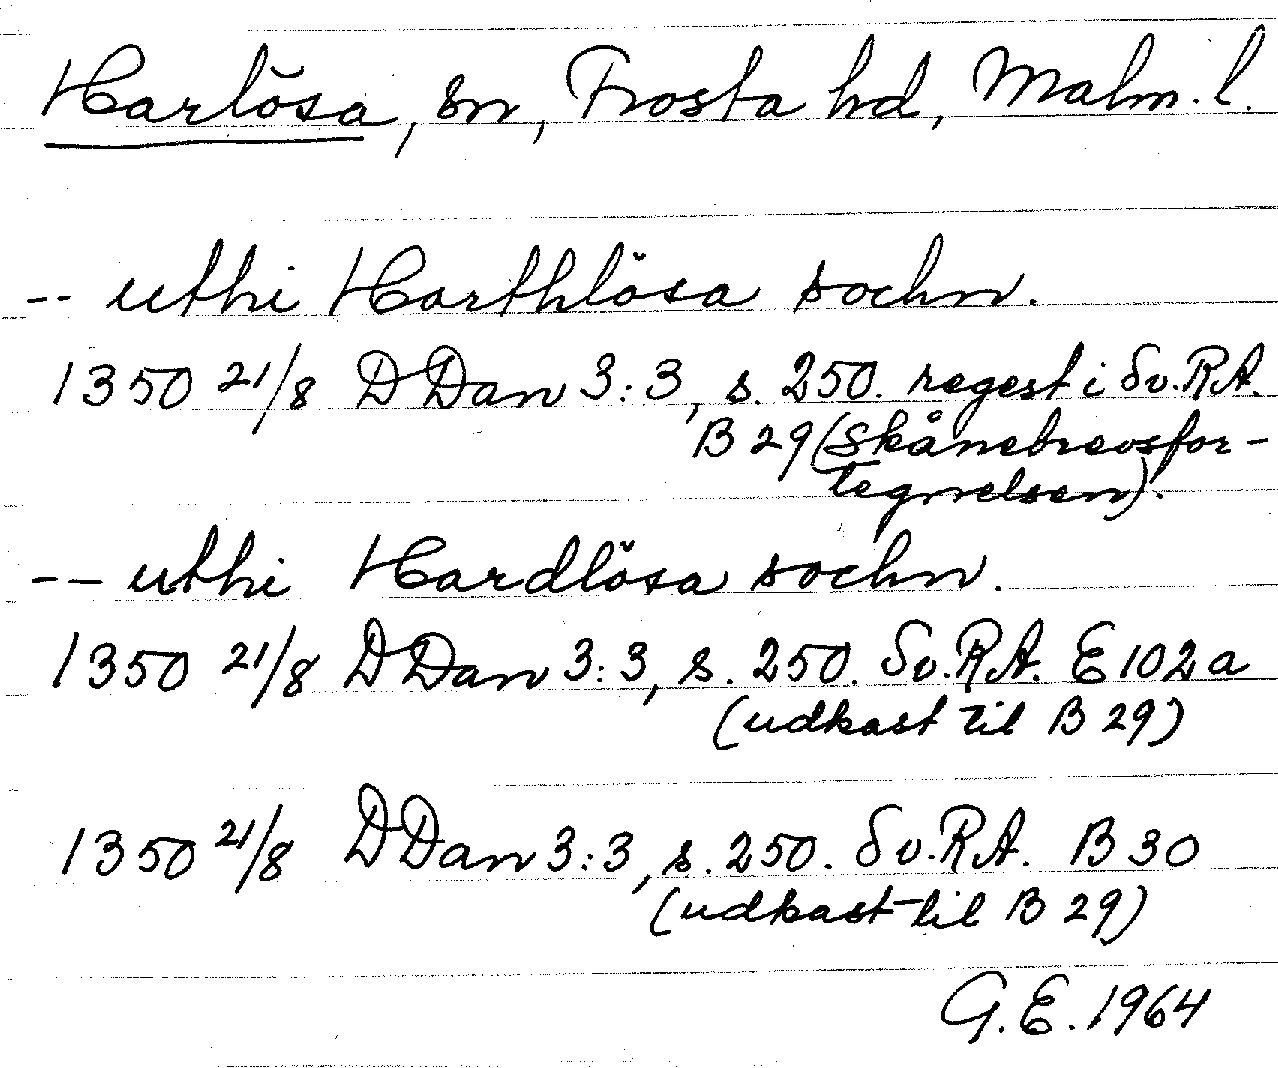 Harlösa, sn, Frosta hd, Malm. l.
-- uthi Harthlösa sochn.
1350 21/8 DDan 3:3, s. 250. regest i Sv.RA.
B 29 (Skånebrevsfor-
tegnelsen).
-- uthi Hardlösa sochn.
1350 21/8 DDan 3:3, s. 250. Sv.RA. E 102 a
(udkast til B 29)
1350 21/8 DDan 3:3, s. 250. Sv.RA. B 30
(udkast til B 29)
G.E. 1964